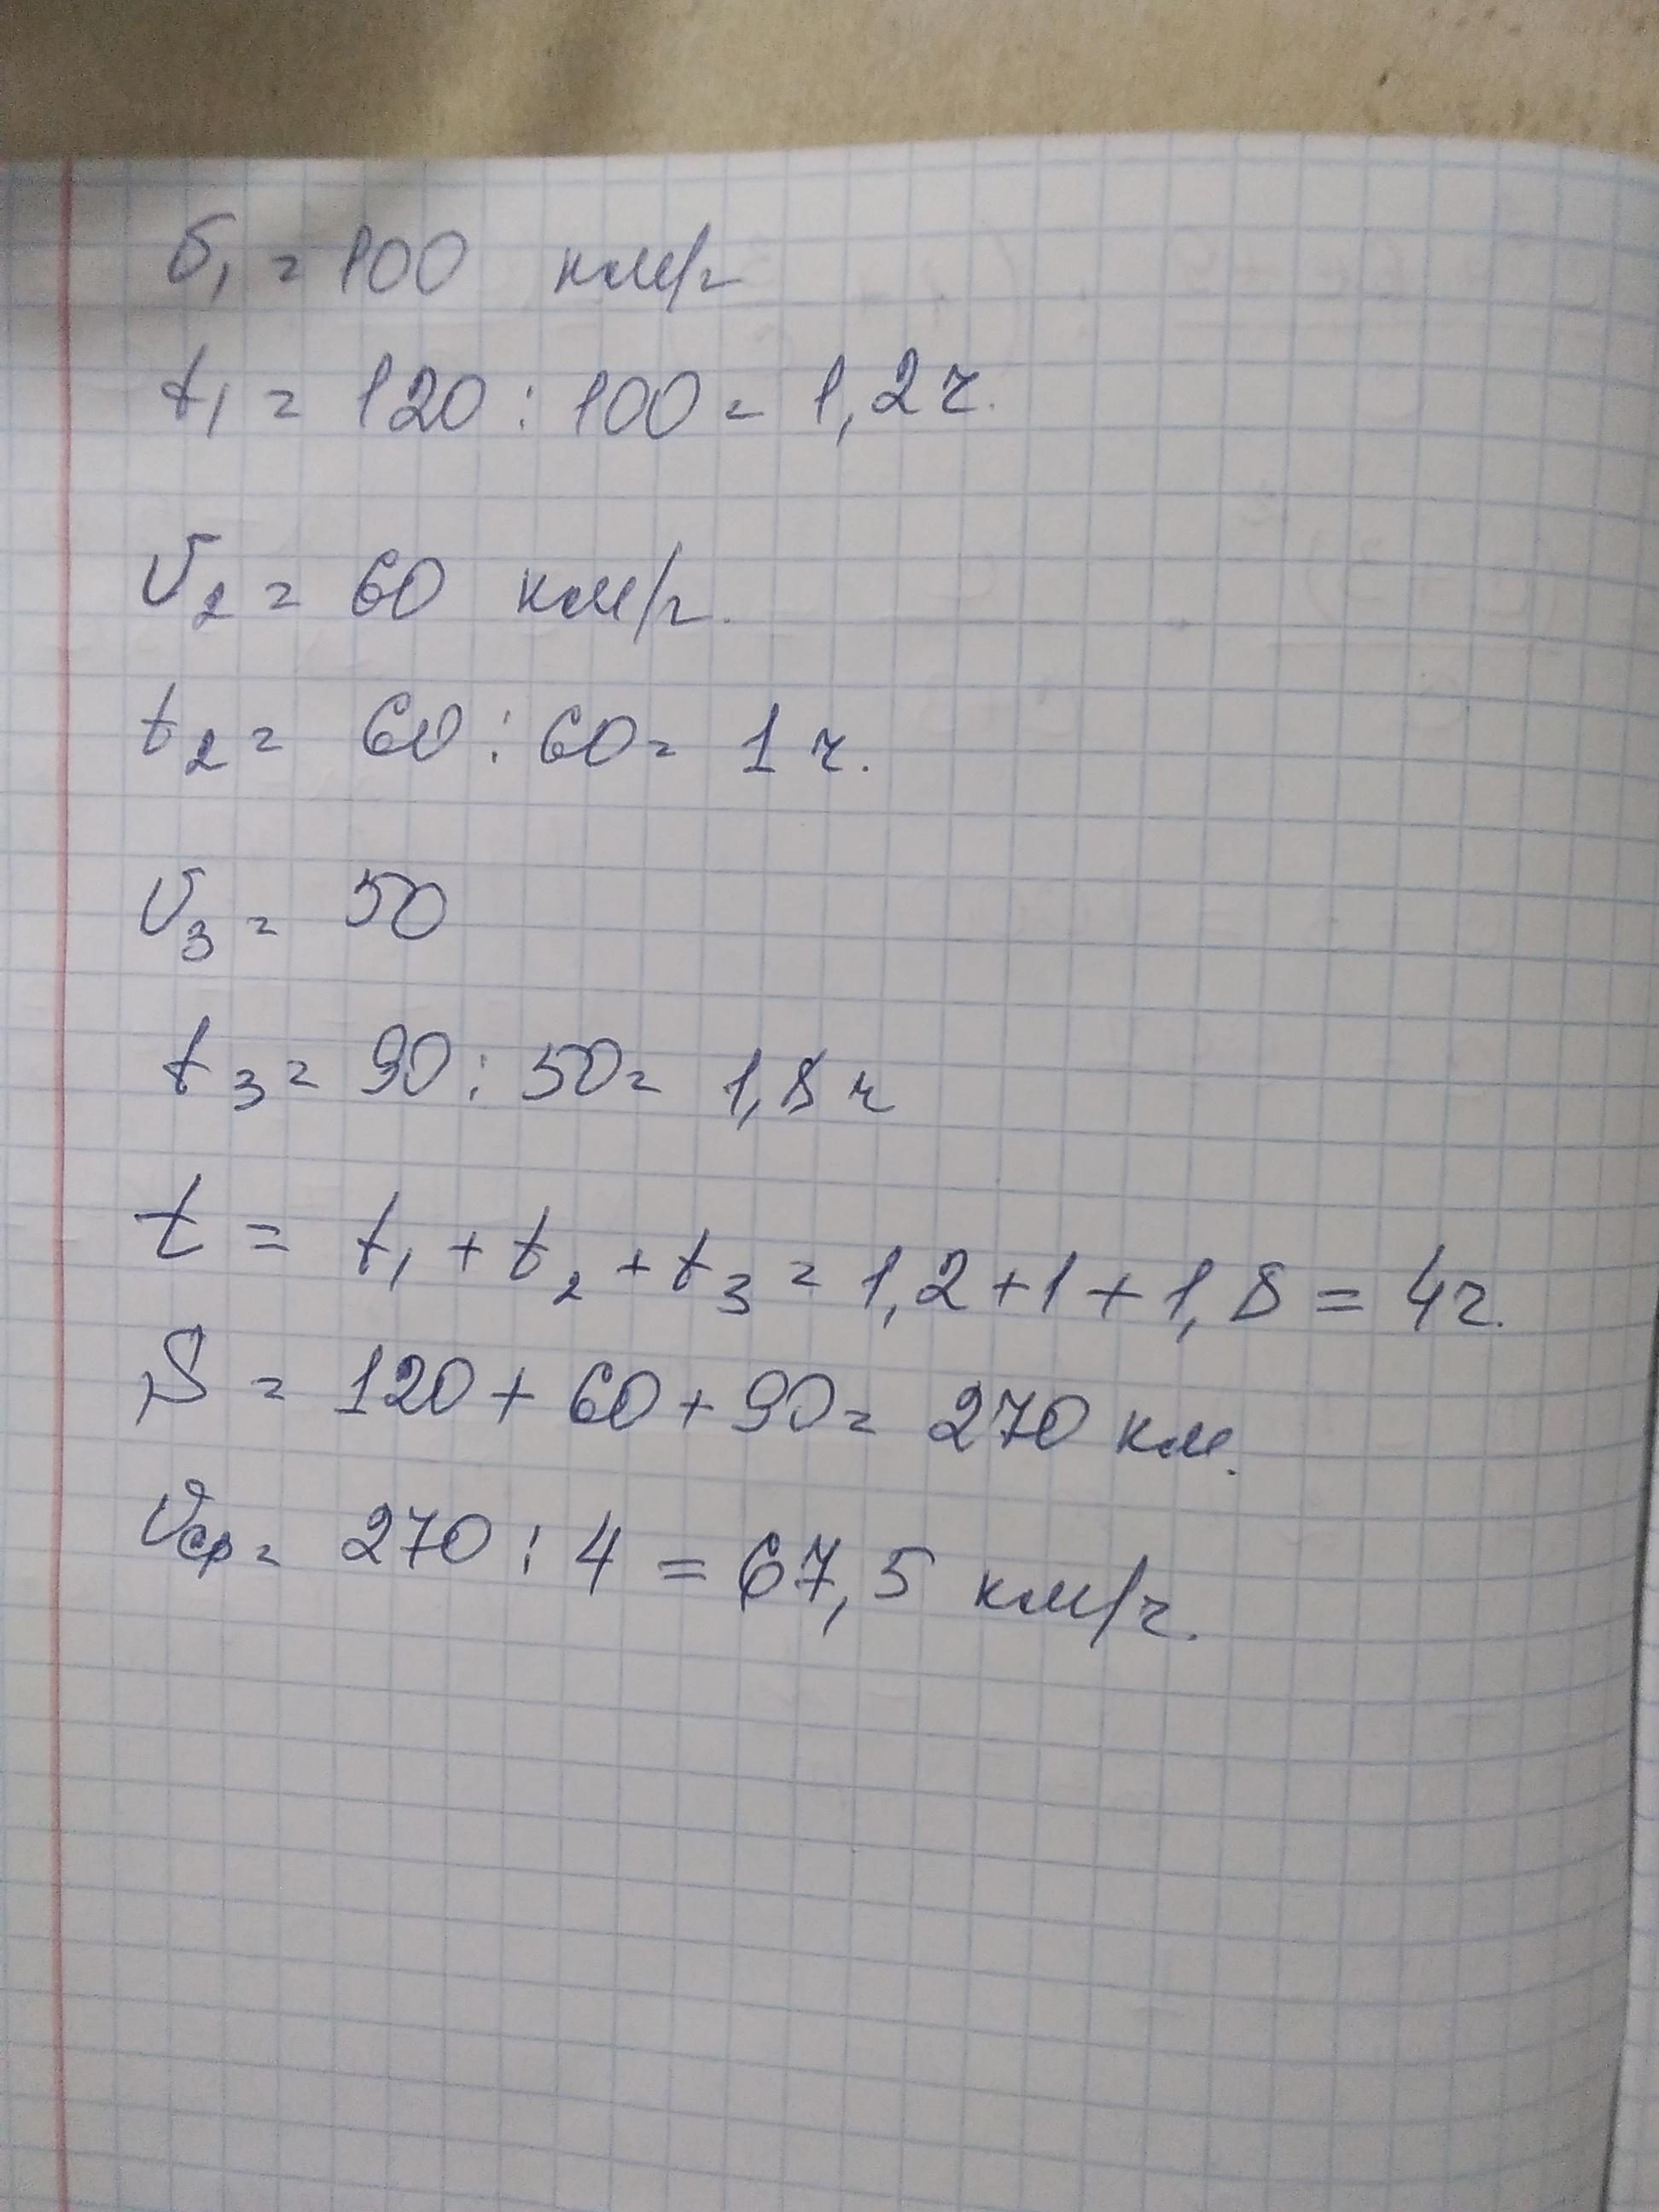 υ₁ = 100 км/ч
t₁ = 120 : 100 = 1,2 ч.
υ₂ = 60 км/ч.
t₂ = 60 : 60 = 1 ч.
υ₃ = 50
t₃ = 90 : 50 = 1,8 ч
t = t₁ + t₂ + t₃ = 1,2 + 1 + 1,8 = 4 ч.
S = 120 + 60 + 90 = 270 км.
υср = 270 : 4 = 67,5 км/ч.